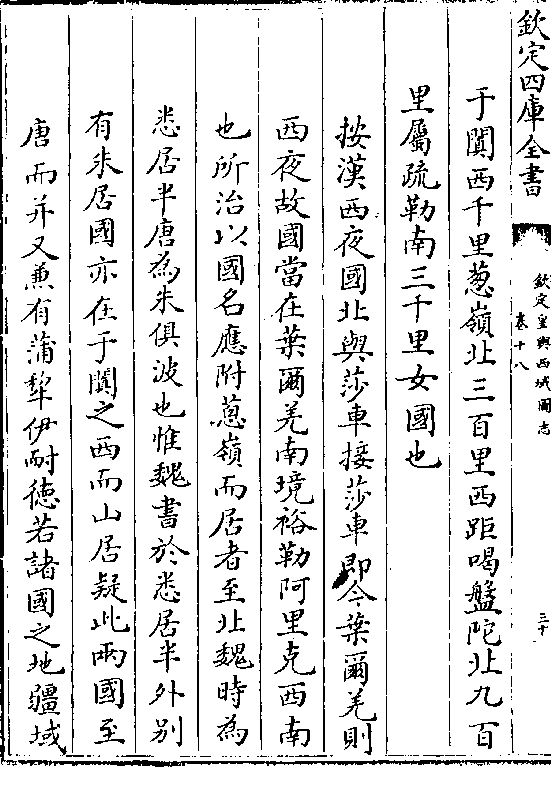 欽定四庫全書
欽定皇輿西域圖志
卷十八
三十
于闐西千里葱嶺北三百里西距喝盤陀北九百
里屬疏勒南三千里女國也
按漢西夜國北與莎車接莎車即今葉爾羌則
西夜故國當在葉爾羌南境裕勒阿里克西南
也所治以國名應附蔥嶺而居者至北魏時為
悉居半唐為朱俱波也惟魏書於悉居半外別
有朱居國亦在于闐之西而山居疑此兩國至
唐而并又兼有蒲犂伊耐德若諸國之地疆域